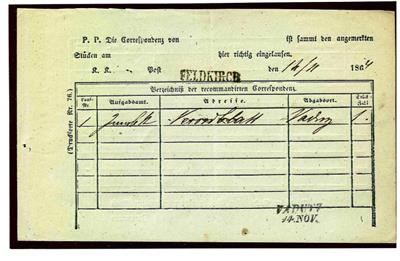 P. P. Die Correspondenz von ist sammt den angemerkten
Stücken am hier richtig eingelaufen.
K. K. Post FELDKIRCH den 14/11 1864
(Drucksorte Nr. 76.)
Verzeichniß der recommandirten Correspondenz.
Aufgabsamt. Adresse. Abgabsort.
1 Vaduz 1
VADUTZ
14. NOV.